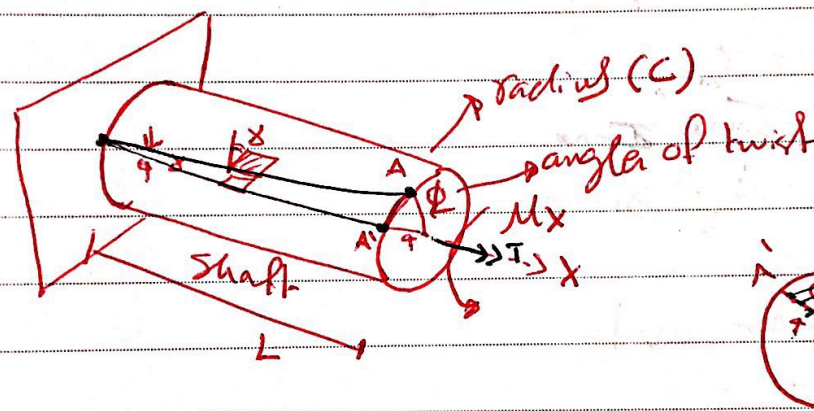 radius (C)
angle of twist
γ
A
φ
Mx
A'
T
x
Shaft
L
A'